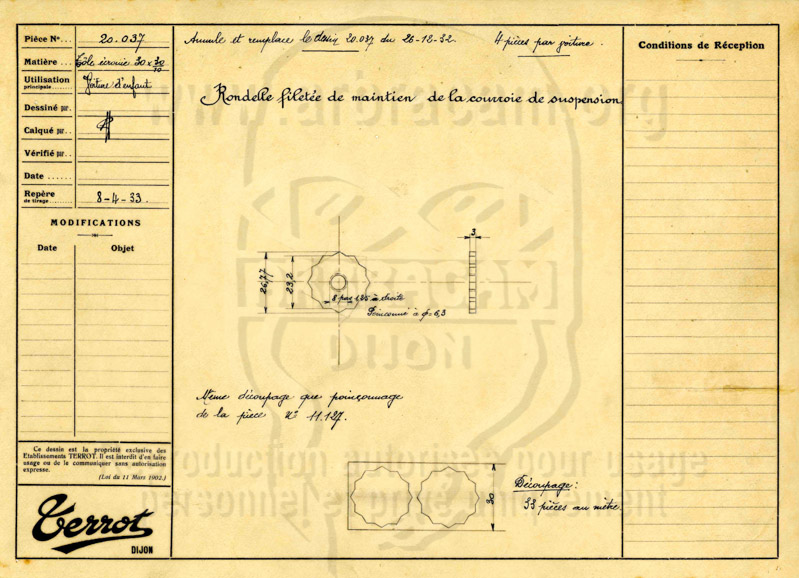 Pièce Nº... 20.037
Matière... Tôle écrouie 30 x 30/10
Utilisation principale Voiture d'enfant
Dessiné par.
Calqué par..
Vérifié par..
Date ......
Repère de tirage 8-4-33.
MODIFICATIONS
Date Objet
Ce dessin est la propriété exclusive des
Etablissements TERROT. Il est interdit d'en faire
usage ou de le communiquer sans autorisation
expresse.
(Loi du 11 Mars 1902.)
Terrot
DIJON
Annule et remplace le dessin 20.037 du 26-12-32. 4 pièces par voiture.
Rondelle filetée de maintien de la courroie de suspension.
3
26,77
23,2
8 pas 125 à droite
Poinçonné à φ=6,3
Même découpage que poinçonnage
de la pièce Nº 11.127.
30
Découpage:
33 pièces au mètre.
Conditions de Réception
DIJON
reproduction autorisées pour usage
personnel et privé uniquement